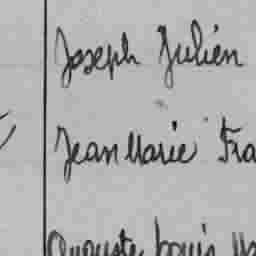 Joseph Julien
Jean Marie Fra
Auguste Louis Ma